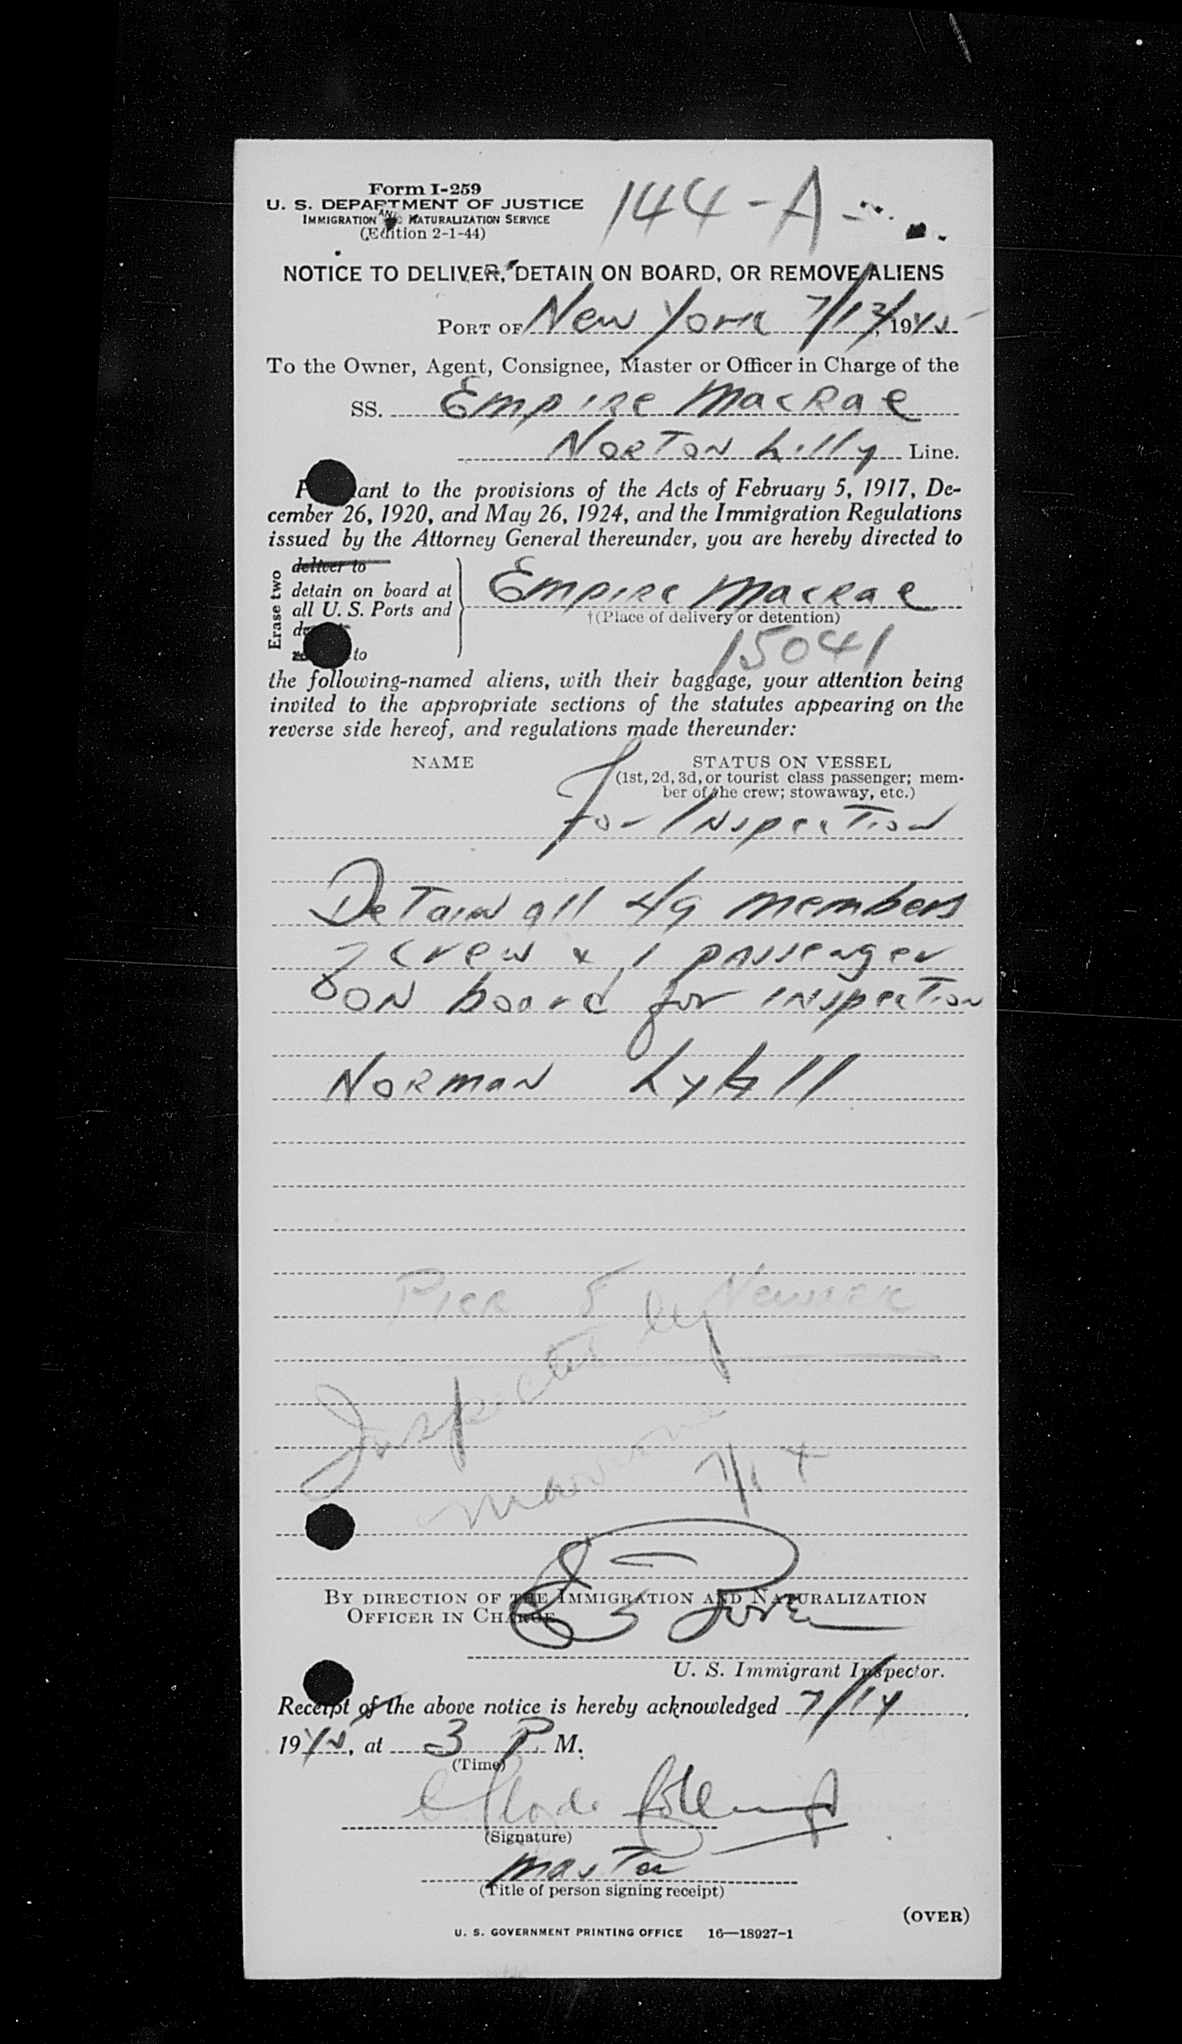 Form I-259
U. S. DEPARTMENT OF JUSTICE
IMMIGRATION AND NATURALIZATION SERVICE
(Edition 2-1-44)
144-A-
NOTICE TO DELIVER, DETAIN ON BOARD, OR REMOVE ALIENS
PORT OF New York 7/13, 1945
To the Owner, Agent, Consignee, Master or Officer in Charge of the
SS. Empire MacRae
Norton Lilly Line.
P ant to the provisions of the Acts of February 5, 1917, De-
cember 26, 1920, and May 26, 1924, and the Immigration Regulations
issued by the Attorney General thereunder, you are hereby directed to
Erase two
deliver to
detain on board at
all U. S. Ports and
to
Empire MacRae
†(Place of delivery or detention)
15041
the following-named aliens, with their baggage, your attention being
invited to the appropriate sections of the statutes appearing on the
reverse side hereof, and regulations made thereunder:
NAME STATUS ON VESSEL
(1st, 2d, 3d, or tourist class passenger; mem-
ber of the crew; stowaway, etc.)
for Inspection
Detain all 49 members
of crew & 1 passenger
on board for inspection
Norman
Pier 5 Newark
Inspected by
7/14
BY DIRECTION OF THE IMMIGRATION AND NATURALIZATION
OFFICER IN CHARGE
U. S. Immigrant Inspector.
Receipt of the above notice is hereby acknowledged 7/14,
1945, at 3 P. M.
(Time)
(Signature)
Master
(Title of person signing receipt)
(OVER)
U. S. GOVERNMENT PRINTING OFFICE 16—18927-1